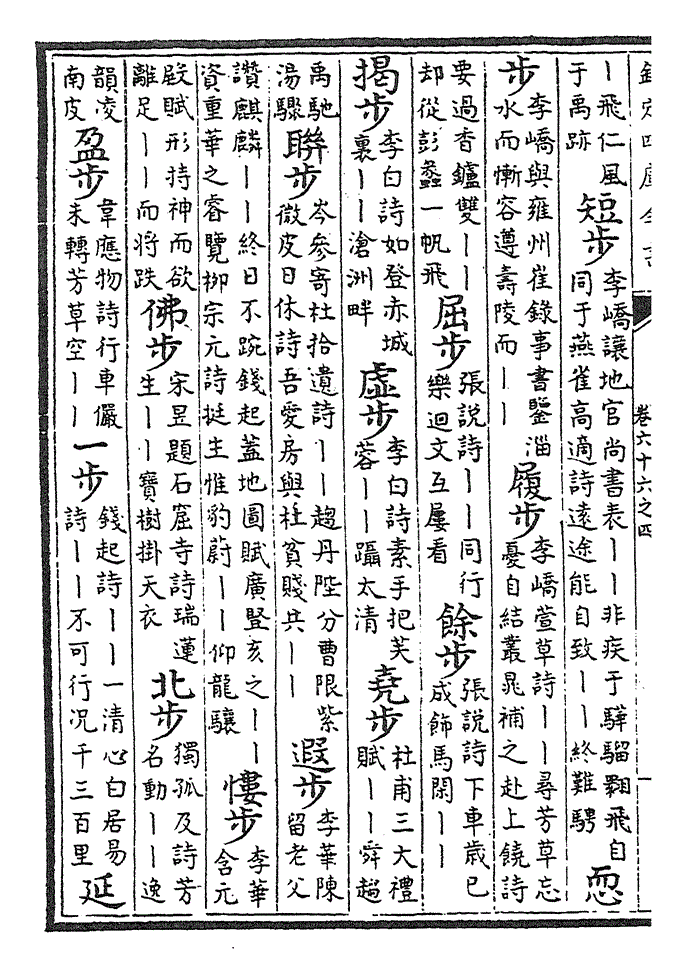 欽定四庫全書 卷六十六之四 一
丨飛仁風于禹跡 短步 李嶠讓地官尚書表丨丨非疾于驊騮翺飛自同于燕雀高適詩逺途能自致丨丨終難騁 恧
步 李嶠與雍州崔錄事書鑒淄水而慚容遵壽陵而丨丨 履步 李嶠萱草詩丨丨尋芳草忘憂自結叢晁補之赴上饒詩
要過香鑪雙丨丨却從彭蠡一帆飛 屈步 張説詩丨丨同行樂迴文互屢看 餘步 張説詩下車歲已成飾馬閑丨丨
揭步 李白詩如登赤城裏丨丨滄洲畔 虛步 李白詩素手把芙蓉丨丨躡太清 堯步 杜甫三大禮賦丨丨舜趨
禹馳湯驟 聯步 岑參寄杜拾遺詩丨丨趨丹陛分曹限紫微皮日休詩吾愛房與杜貧賤共丨丨 遐步 李華陳留老父
讚麒麟丨丨終日不踠錢起蓋地圖賦廣豎亥之丨丨資重華之睿覽柳宗元詩挺生惟豹蔚丨丨仰龍驤 慺步 李華含元
殿賦形持神而欲離足丨丨而將跌 佛步 宋昱題石窟寺詩瑞蓮生丨丨寶樹掛天衣 北步 獨孤及詩芳名動丨丨逸
韻凌南皮 盈步 韋應物詩行車儼未轉芳草空丨丨 一步 錢起詩丨丨一清心白居易詩丨丨不可行况千三百里 延